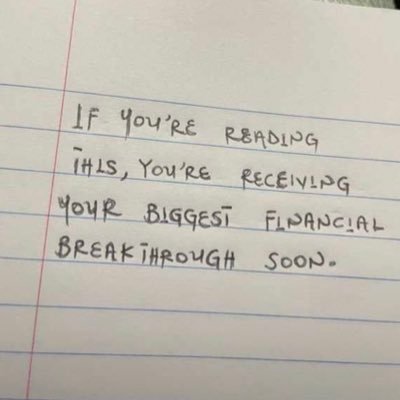 IF YOU'RE READING
THIS, YOU'RE RECEIVING
YOUR BIGGEST FINANCIAL
BREAKTHROUGH SOON.